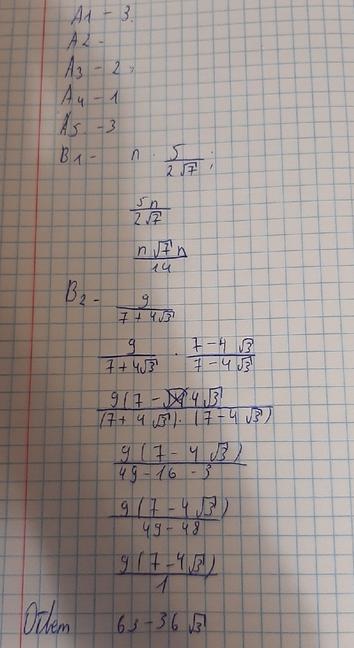 A1 - 3.
A2 -
A3 - 2
A4 - 1
A5. - 3
B1 - n · 5/(2√7);
5n/(2√7)
n√7n/14
B2 - 9/(7+4√3)
9/(7+4√3) · (7-4√3)/(7-4√3)
9(7-4√3)/((7+4√3)·(7-4√3))
9(7-4√3)/(49-16-3)
9(7-4√3)/(49-48)
9(7-4√3)/1
Ответ 63-36√3